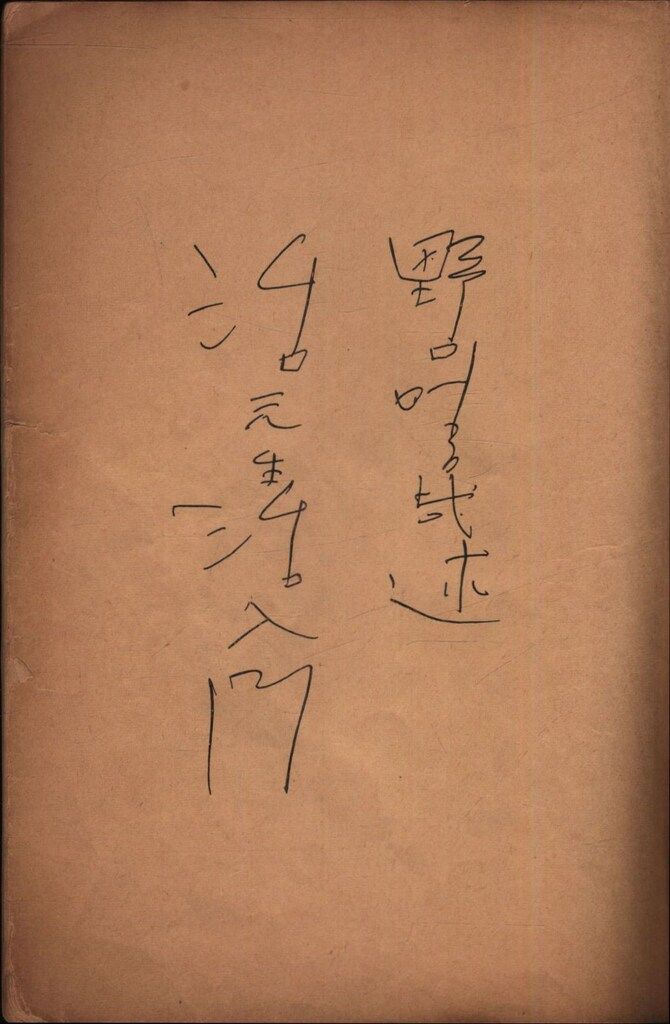 野口晴哉述
活元生活入門